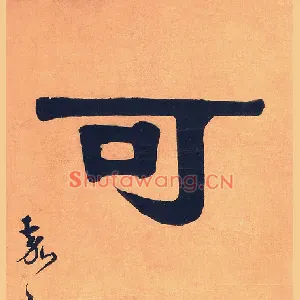 可
Shufawang.CN